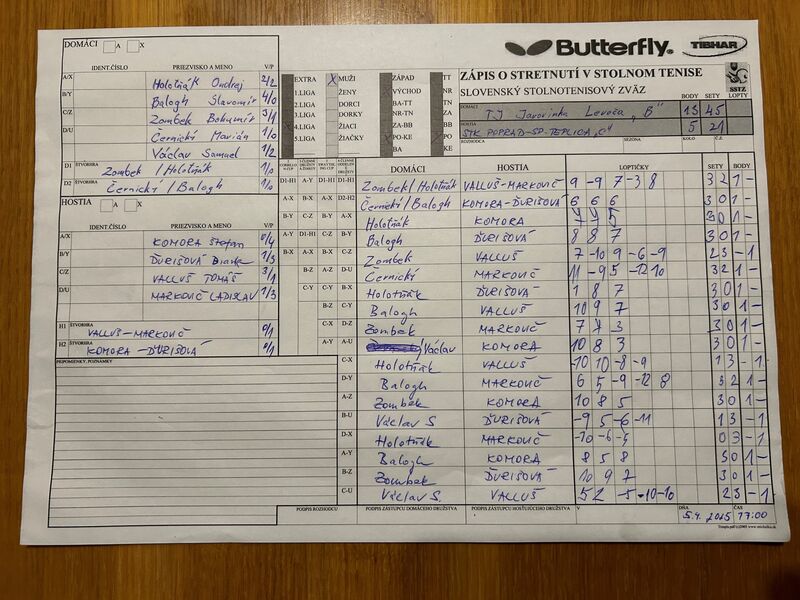 Butterfly. TIBHAR
ZÁPIS O STRETNUTÍ V STOLNOM TENISE
SLOVENSKÝ STOLNOTENISOVÝ ZVÄZ
SSTZ
BODY SETY LOPTY
DOMÁCI TJ Javorinka Levoča "B" 13 45
HOSTIA STK POPRAD-SP. TEPLICA "C" 5 21
ROZHODCA SEZONA KOLO Č.Z.
DOMÁCI A X
IDENT.ČÍSLO PRIEZVISKO A MENO V/P
A/X Holotňák Ondrej 2/2
B/Y Balogh Slavomír 4/0
C/Z Zombek Bohumír 3/1
D/U Černický Marián 1/0
Václav Samuel 1/2
D1 ŠTVORHRA Zombek / Holotňák 1/0
D2 ŠTVORHRA Černický / Balogh 1/0
HOSTIA A X
IDENT.ČÍSLO PRIEZVISKO A MENO V/P
A/X KOMORA Štefan 0/4
B/Y ĎURIŠOVÁ 1/3
C/Z VALLUŠ TOMÁŠ 3/1
D/U MARKOVIČ LADISLAV 1/3
H1 ŠTVORHRA VALLUŠ-MARKOVIČ 0/1
H2 ŠTVORHRA KOMORA-ĎURIŠOVÁ 0/1
PRIPOMIENKY, POZNÁMKY
EXTRA X MUŽI ZÁPAD TT
1.LIGA ŽENY VÝCHOD NR
2.LIGA DORCI BA-TT TN
3.LIGA DORKY NR-TN ZA
4.LIGA ŽIACI ZA-BB BB
5.LIGA ŽIAČKY PO-KE PO
BA KE
DOMÁCI HOSTIA LOPTIČKY SETY BODY
D1-H1 A-Y D1-H1 D1-H1 Zombek / Holotňák VALLUŠ-MARKOVIČ 9 -9 7 -3 8 3 2 1 -
A-X B-X A-X D2-H2 Černický / Balogh KOMORA-ĎURIŠOVÁ 6 6 6 3 0 1 -
B-Y C-Z B-Y A-X Holotňák KOMORA 7 7 5 3 0 1 -
A-Y D1-H1 C-Z B-Y Balogh ĎURIŠOVÁ 8 8 7 3 0 1 -
B-X A-X D1-H1 C-Z Zombek VALLUŠ 7 -10 9 -6 -9 2 3 - 1
B-Z A-Z D-U Černický MARKOVIČ 11 -9 5 -12 10 3 2 1 -
C-Y C-Y B-X Holotňák ĎURIŠOVÁ 1 8 7 3 0 1 -
B-Z C-Y Balogh VALLUŠ 10 9 7 3 0 1 -
C-X D-Z Zombek MARKOVIČ 7 7 3 3 0 1 -
A-Y A-U Václav KOMORA 10 8 3 3 0 1 -
C-X Holotňák VALLUŠ -10 10 -8 -9 1 3 - 1
D-Y Balogh MARKOVIČ 6 5 -9 -12 8 3 2 1 -
A-Z Zombek KOMORA 10 8 5 3 0 1 -
B-U Václav S. ĎURIŠOVÁ -9 5 -6 -11 1 3 - 1
D-X Holotňák MARKOVIČ -10 -6 -5 0 3 - 1
A-Y Balogh KOMORA 8 5 8 3 0 1 -
B-Z Zombek ĎURIŠOVÁ 10 9 7 3 0 1 -
C-U Václav S. VALLUŠ 5 2 -5 -10 -10 2 3 - 1
PODPIS ROZHODCU PODPIS ZÁSTUPCU DOMÁCEHO DRUŽSTVA PODPIS ZÁSTUPCU HOSŤUJÚCEHO DRUŽSTVA V DŇA 5.4. 2025 ČAS 17:00